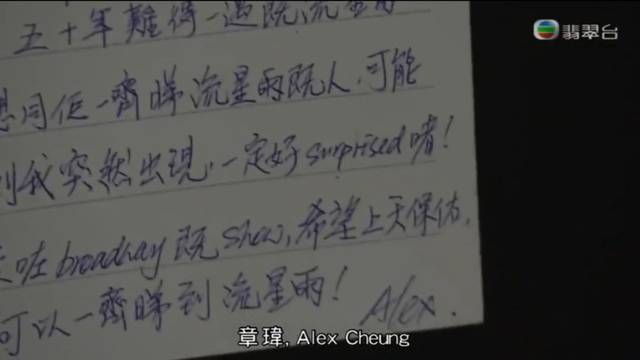 翡翠台
五十年難得一遇既流星雨
想同佢一齊睇流星雨既人,可能
到我突然出現,一定好surprised啫!
咗broadway既show,希望上天保佑,
可以一齊睇到流星雨!
Alex.
章瑋, Alex Cheung